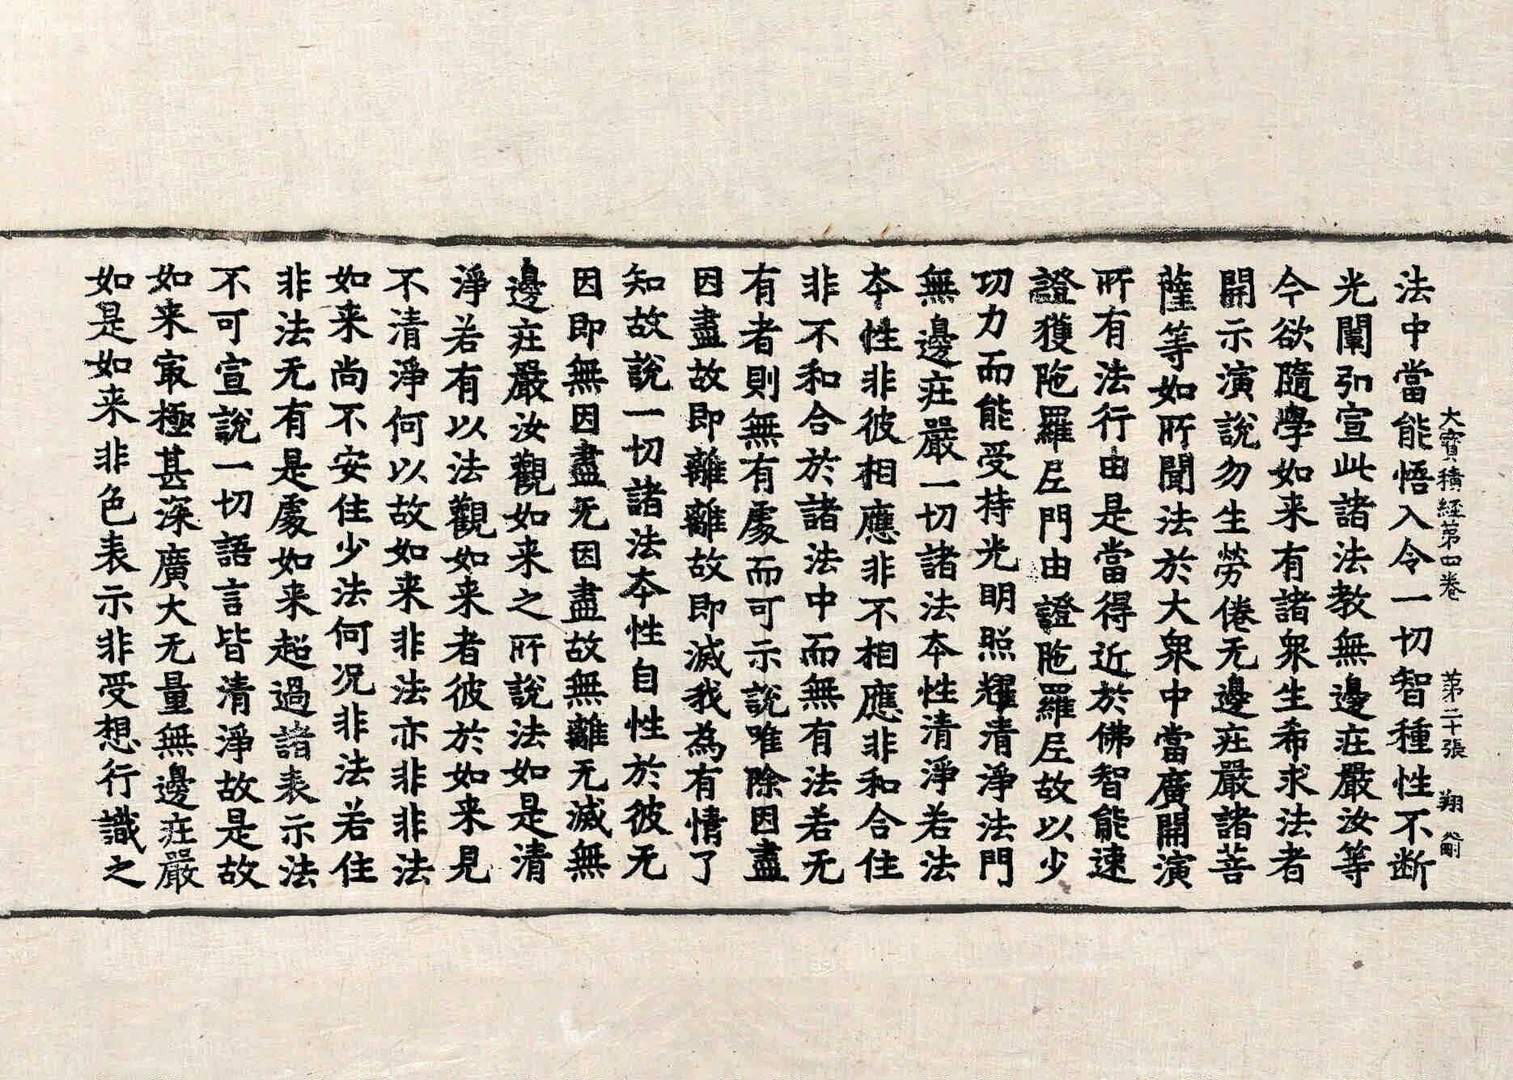 大寶積經第四卷　第二十張　翔
法中當能悟入令一切智種性不断
光闡弘宣此諸法教無邊疘嚴汝等
今欲隨學如来有諸衆生希求法者
開示演說勿生勞倦无邊疘嚴諸菩
薩等如所聞法於大衆中當廣開演
所有法行由是當得近於佛智能速
證獲陁羅𡰱門由證陁羅𡰱故以少
功力而能受持光明照耀清淨法門
無邊疘嚴一切諸法夲性清淨若法
夲性非彼相應非不相應非和合住
非不和合於諸法中而無有法若无
有者則無有處而可示說唯除因盡
因盡故即離離故即滅我為有情了
知故說一切諸法夲性自性於彼无
因即無因盡无因盡故無離无滅無
邊疘嚴汝觀如来之所說法如是清
淨若有以法觀如来者彼於如来見
不清淨何以故如来非法亦非非法
如来尚不安住少法何況非法若住
非法无有是處如来超過諸表示法
不可宣說一切語言皆清淨故是故
如来㝡極甚深廣大无量無邊疘嚴
如是如来非色表示非受想行識之